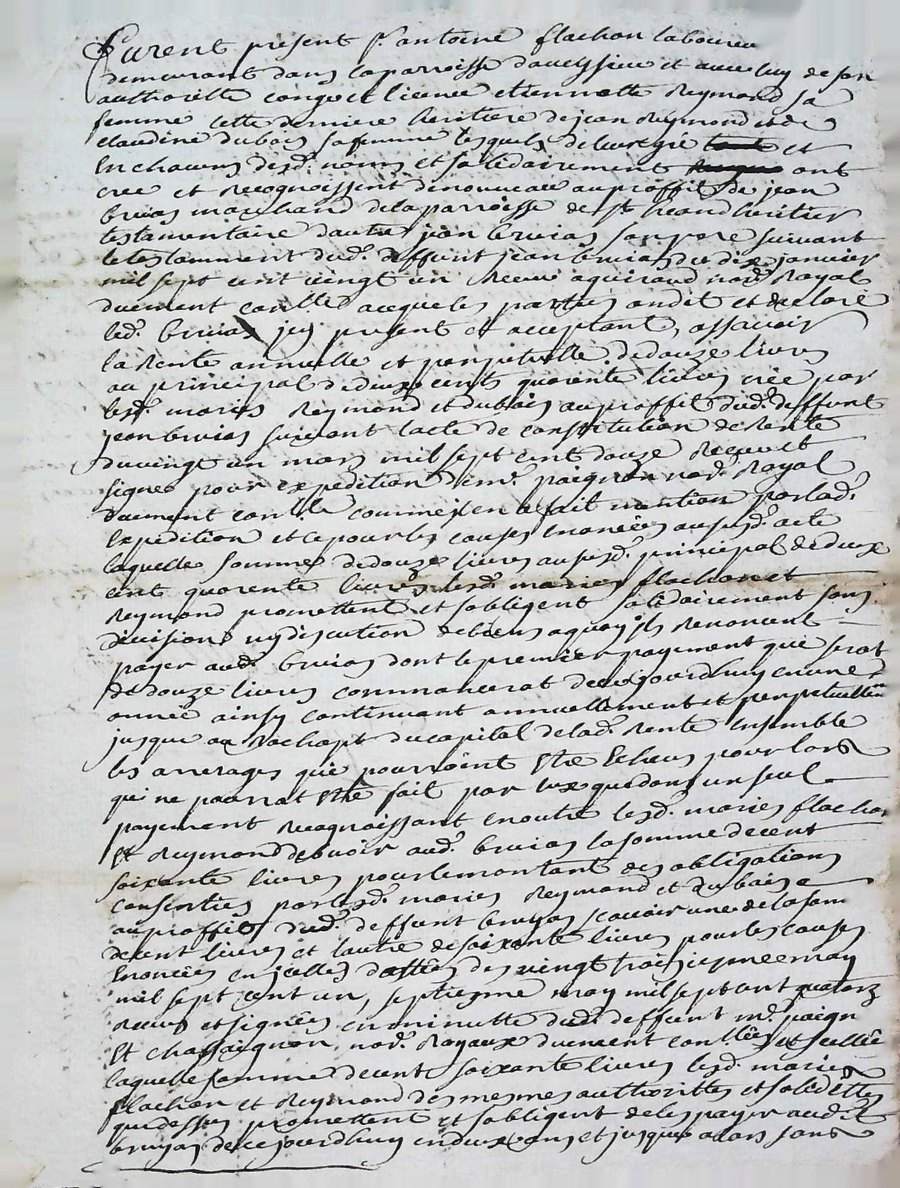 furent present sr. antoine flachon laboureu
demeurant dans la parroisse daveysieu et avec luy de son
authoritté congé et licence etiennette Reymond sa
femme cette derniere heritiere de jean Reymond et de
claudine dubois sa femme lesquels de leur gré et
En chacuns desd. noms et solidairement ont
cree et recognoissent denouveau au proffit de jean
bruias marchand de la parroisse de st heritier
testamentaire dautre jean bruias son pere suivant
le testamment dud. deffunt jean bruias du dix janvier
mil sept cent vingt un Receu aguiraud nore. Royal
duement conllé acquelles parties ondit et declare
led. bruias jcy present et acceptant, assavoir
la rente annuelle et perpetuelle de douze livres
au principal de deux cents quarente livres crée par
lesd. mariés Reymond et dubois au proffit dud. deffunt
jean bruias suivant lacte de constitution de rente
du vingt un mars mil sept cent douze Receu et
signé pour expedition de me. paignon nore. Royal
duement conllé comme jl en a fait mention par lad.
Expedition et ce pour les causes Enoncées ausd. acte
laquelle somme de douze livres au susd. principal de deux
cent quarente livres lesd. mariés flachon et
Reymond promettent et sobligent solidairement sans
division ny discution de biens a quoy jls renoncent
payer aud. bruias dont le premier payement que serat
de douze livres commancerat de cejourdhuy en une
année ainsy continuant annuellement et perpetuellem
jusque au Rachapt du capital de lad. rente Ensemble
les arrerages quje pourroint Etre Echeus pour lors
qui ne pourrat Etre fait par eux que dans un seul
payement recognoissant en outre lesd. mariés flachon
Et Reymond debvoir aud. bruias la somme de cent
soixante livres pour le montant des obligations
Consenties par lesd. mariés Reymond et dubois
au proffit dud. deffunt bruyas scavoir une de la som
de cent livres et lautre de soixante livres pour les causes
Enoncées en jcelles dattées des vingt troisiesme may
mil sept cent un, septiesme may mil sept cent quatorz
Receus et signées en minutte dud. deffunt me. paign
Et chassaignon nore. Royaux duement conllées et scellée
laquelle somme de cent soixante livres lesd. mariés
flachon et Reymond des mesmes authorittes et solidittes
que dessus promettent et sobligent de les payer aud.
bruyas de cejourdhuy en deux ans et jusques a lors sans